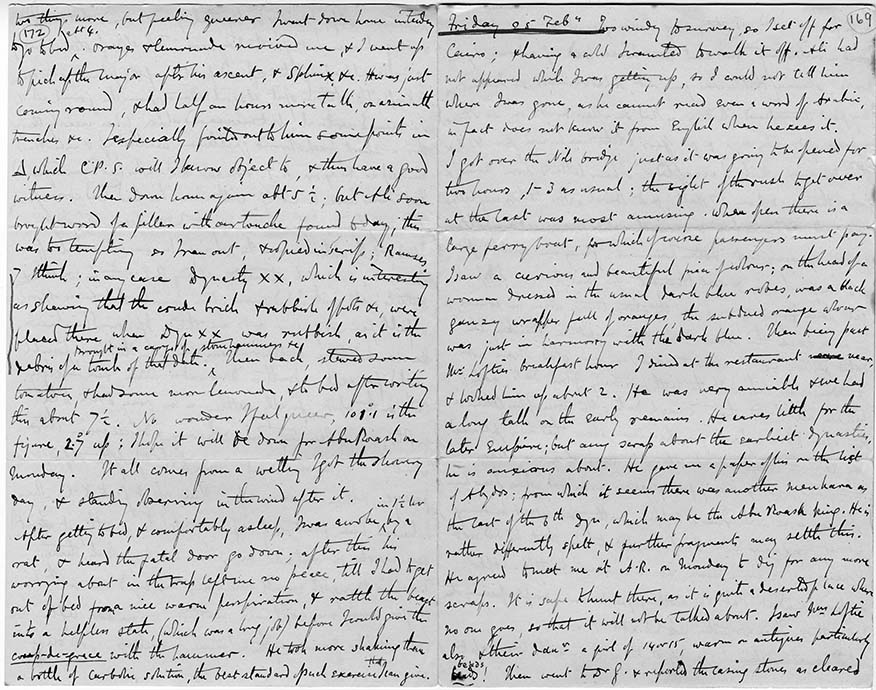 (172)
two thry more, but feeling queerer I went down home intending
to go to bed abt 4. oranges & lemonade revived me, & I went up
to pick up the major after his ascent, & Sphinx &c. He was just
coming round, & had half an hours more talk, on azimuth
trenches &c. I especially pointed out to him some points in
which C.P.S. will I know object to, & thus have a good
witness. Then down home again abt 5½; but Ali soon
brought word of a pillar with cartouche found today; this
was too tempting so I ran out, & copied inscrip; Ramses
I think; in any case Dynasty XX, which is interesting
as shewing that the crude brick & rubbish of pots &c, were
placed there when Dyn XX was rubbish, as it is the
debris of a tomb of that date. Brought in a cargo of stone hammers &c Then back, stewed some
tomatoes, & had some more lemonade, & to bed after writing
this about 7½. No wonder I feel queer, 101°.1 is the
figure, 2°.7 up; I hope it will be down for Abu Roash on
Monday. It all comes from a wetting I got the showery
day, & standing observing in the wind after it.
After getting to bed, & comfortably asleep, I was awoke in 1½ hr by a
rat, & heard the fatal door go down; after this his
worrying about in the trap left me no peace, till I had to get
out of bed from a nice warm perspiration, & rattle the beast
into a helpless state, (which was a long job) before I could give the
coup-de-grace with the hammer. He took more shaking than
a bottle of carbolic solution, the best standard of such exercise that I can give.
(169)
Friday 25 Feby Too windy to survey, so I set off for
Cairo; & having a cold I wanted to walk it off. Ali had
not appeared which I was getting up, so I could not tell him
where I was gone, as he cannot read even a word of Arabic,
in fact does not know it from English when he sees it.
I got over the Nile bridge just as it was going to be opened for
two hours, 1-3 as usual; the sight of the rush to get over
at the last was most amusing. When open there is a
large ferry boat, for which of course passengers must pay.
I saw a curious and beautiful piece of colour; on the head of a
woman dressed in the usual dark blue robes, was a black
gauzy wrapper full of oranges, the subdued orange colour
was just in harmony with the dark blue. Then being past
Mr Loftie's breakfast hour I dined at the restaurant near,
& looked him up about 2. He was very amiable & we had
a long talk on the early remains. He cares little for the
later Empire; but any scrap about the earliest dynasties,
he is anxious about. He gave me a paper of his on the list
of Abydos; from which it seems there was another menkara as
the last of the 6th dyn, which may be the Abu Roash king. He is
rather differently spelt, & further fragments may settle this.
He agreed to meet me at A.R. on Monday to dig for any more
scraps. It is safe to hunt there, as it is quite a deserted place where
no one goes, so that it will not be talked about. I saw Mrs Loftie
also & their daur. a girl of 14 or 15, warm on antiques particularly
beads! Then went to Dr G. & reported the casing stones as cleared